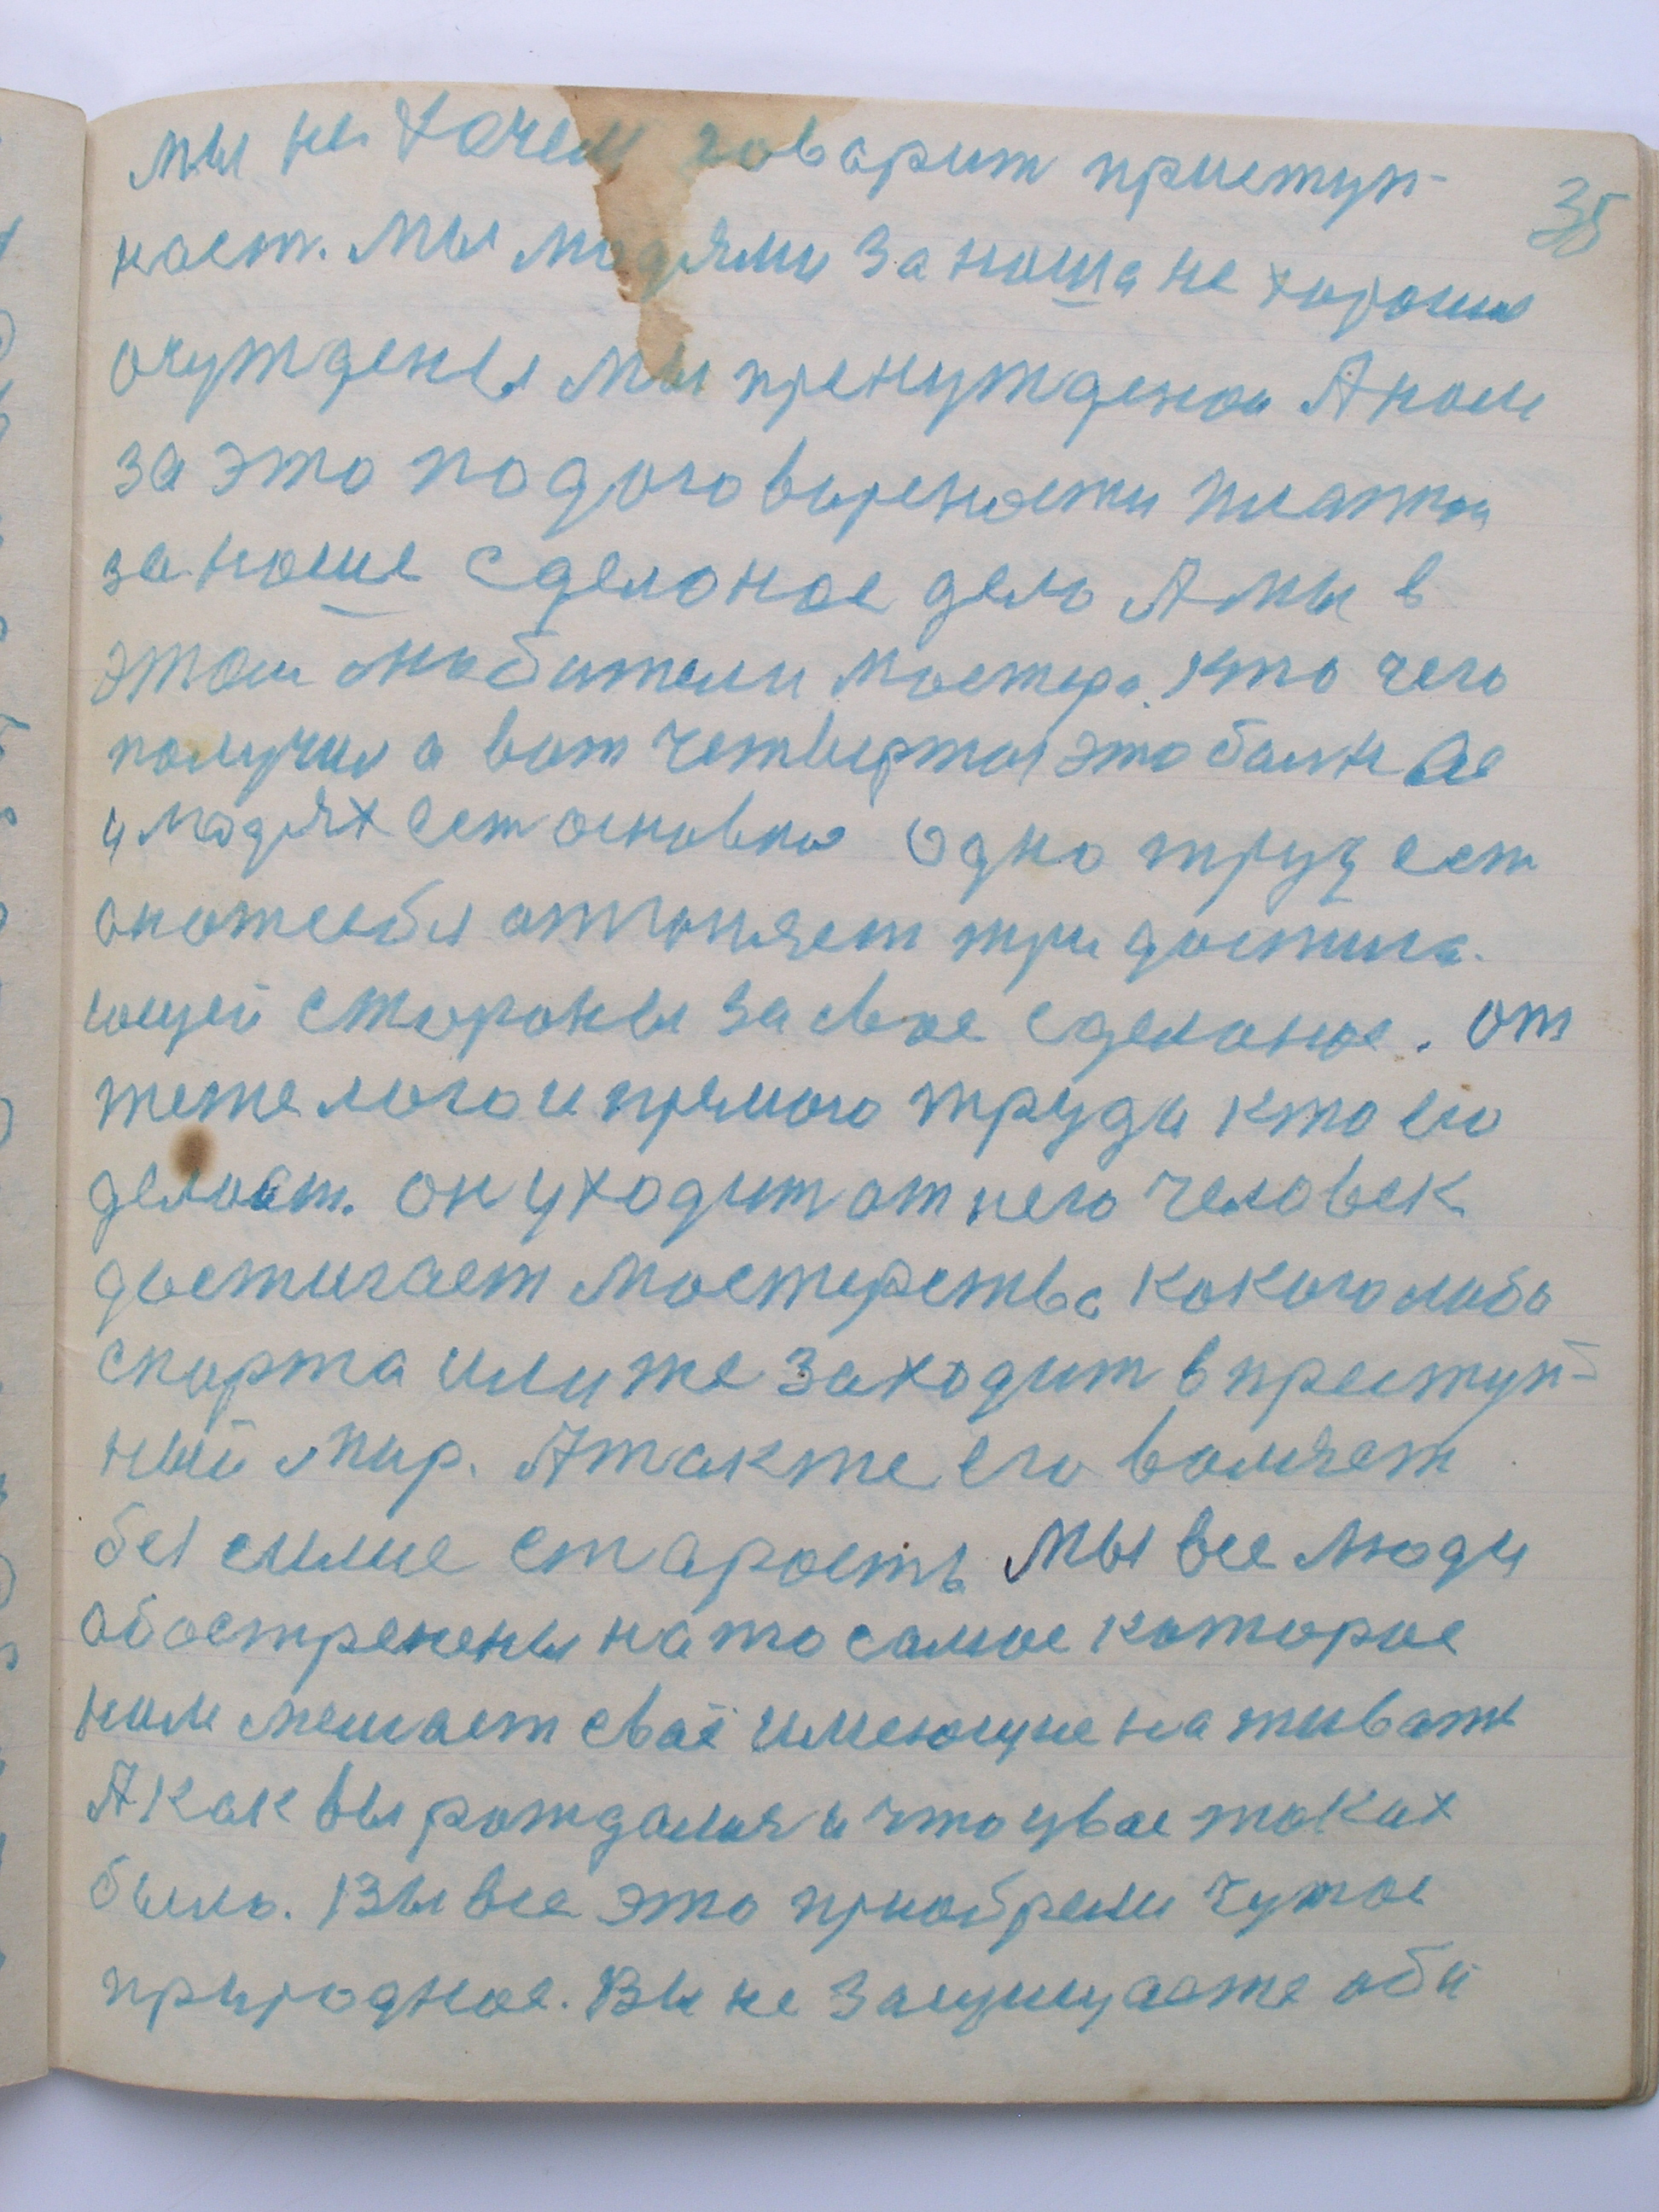 мы не хочем говарит приступ-
35
ност. Мы людями за наша не хороши
очуждены мы принуждены А нам
за это по договырености платит
за наше сделоное дело А мы в
этом любители мастера. Кто чего
получил а вот четвертая это болн Ае
у людях ест основно одно труд ест
от себя отгоняет три достига-
ющей стороны за свое сделаное. от
тежелого и прямого труда кто его
делоет. он уходит от него человек
достигает мостерства какого либо
спорта или же заходит в преступ-
ний мир. А так же его воляет
без силие старость Мы все люди
обострены на то самое которое
нам мешает своё имеющие наживать
А как вы рождалия и что увас таких
было. Вы все это приобрели чужое
природное. Вы не защищаете оби